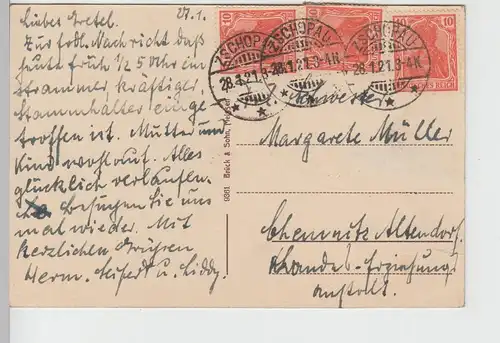 27.1.
Liebes Gretel.
Zur frdl. Nachricht daß
heute früh ½5 Uhr ein
strammer, kräftiger
Stammhalter einge
troffen ist. Mutter und
Kind wohlauf. Alles
glücklich verlaufen.
Besuchen Sie uns
mal wieder. Mit
herzlichen Grüßen
Herm. Seifert u. Liddy.
10
10
10
ZSCHOPAU
28.1.21.3-4N
ZSCHOPAU
28.1.21.3-4N
ZSCHOPAU
28.1.21.3-4N
DEUTSCHES REICH
8981 Brück & Sohn, Meissen
Schwester
Margarete Müller
Chemnitz Altendorf.
Landes-Erziehungs
anstalt.